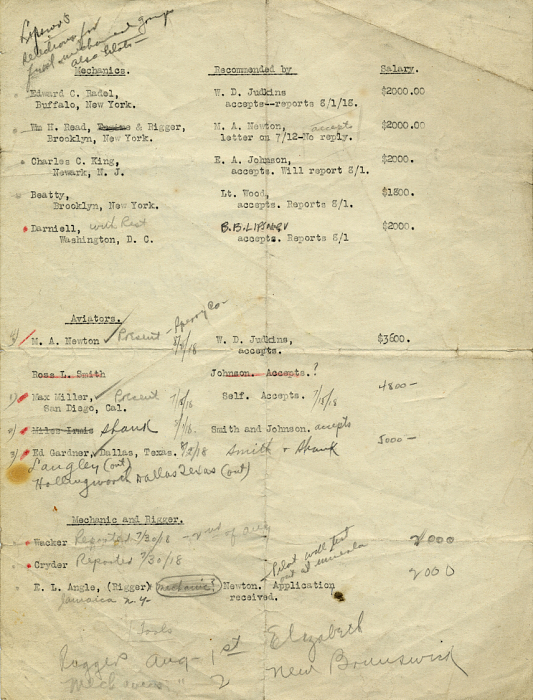 Lipsner's
selections for
first mechanics and group
also pilots —
Mechanics. Recommended by Salary.
Edward C. Radel, W. D. Judkins $2000.00
Buffalo, New York. accepts--reports 8/1/18.
Wm H. Read, & Rigger, M. A. Newton, accepts $2000.00
Brooklyn, New York. letter on 7/12-No reply.
Charles C. King, E. A. Johnson, $2000.
Newark, N. J. accepts. Will report 8/1.
Beatty, Lt. Wood, $1800.
Brooklyn, New York. accepts. Reports 8/1.
Darniell, with Rest B.B. LIPSNER $2000.
Washington, D. C. accepts. Reports 8/1
Aviators.
4) M. A. Newton Present - Sperry Co- W. D. Judkins, $3600.
accepts.
Rose L. Smith Johnson. Accepts.?
1) Max Miller, Present Self. Accepts. 7/18/8 4800—
San Diego, Cal.
2) Miles Irmis Shank Smith and Johnson. accepts
3) Ed Gardner, Dallas, Texas. 8/2/18 Smith + Shank 5000—
Langley (out)
Hollingworth Dallas Texas (out)
Mechanic and Rigger.
Wacker Reported 7/30/18 2000
Cryder Reported 7/30/18
E. L. Angle, (Rigger) mechanic? Newton. Application 2000
Jamaica N.Y. received.
Pilot will test
out at mineola
Tools
Riggers Aug - 1st Elizabeth
Mechanics " 2 New Brunswick